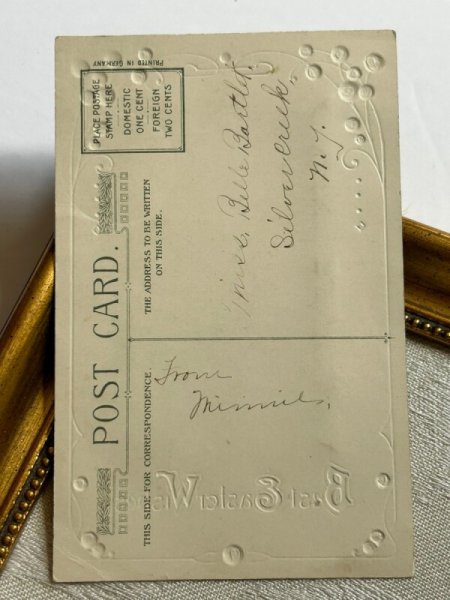 POST CARD.
PRINTED IN GERMANY
PLACE POSTAGE
STAMP HERE
DOMESTIC
ONE CENT
FOREIGN
TWO CENTS
THIS SIDE FOR CORRESPONDENCE.
THE ADDRESS TO BE WRITTEN
ON THIS SIDE.
From
Minnie,
Miss, Belle Bartlett,
Silver Creek,
N.Y.
Best Easter Wishes